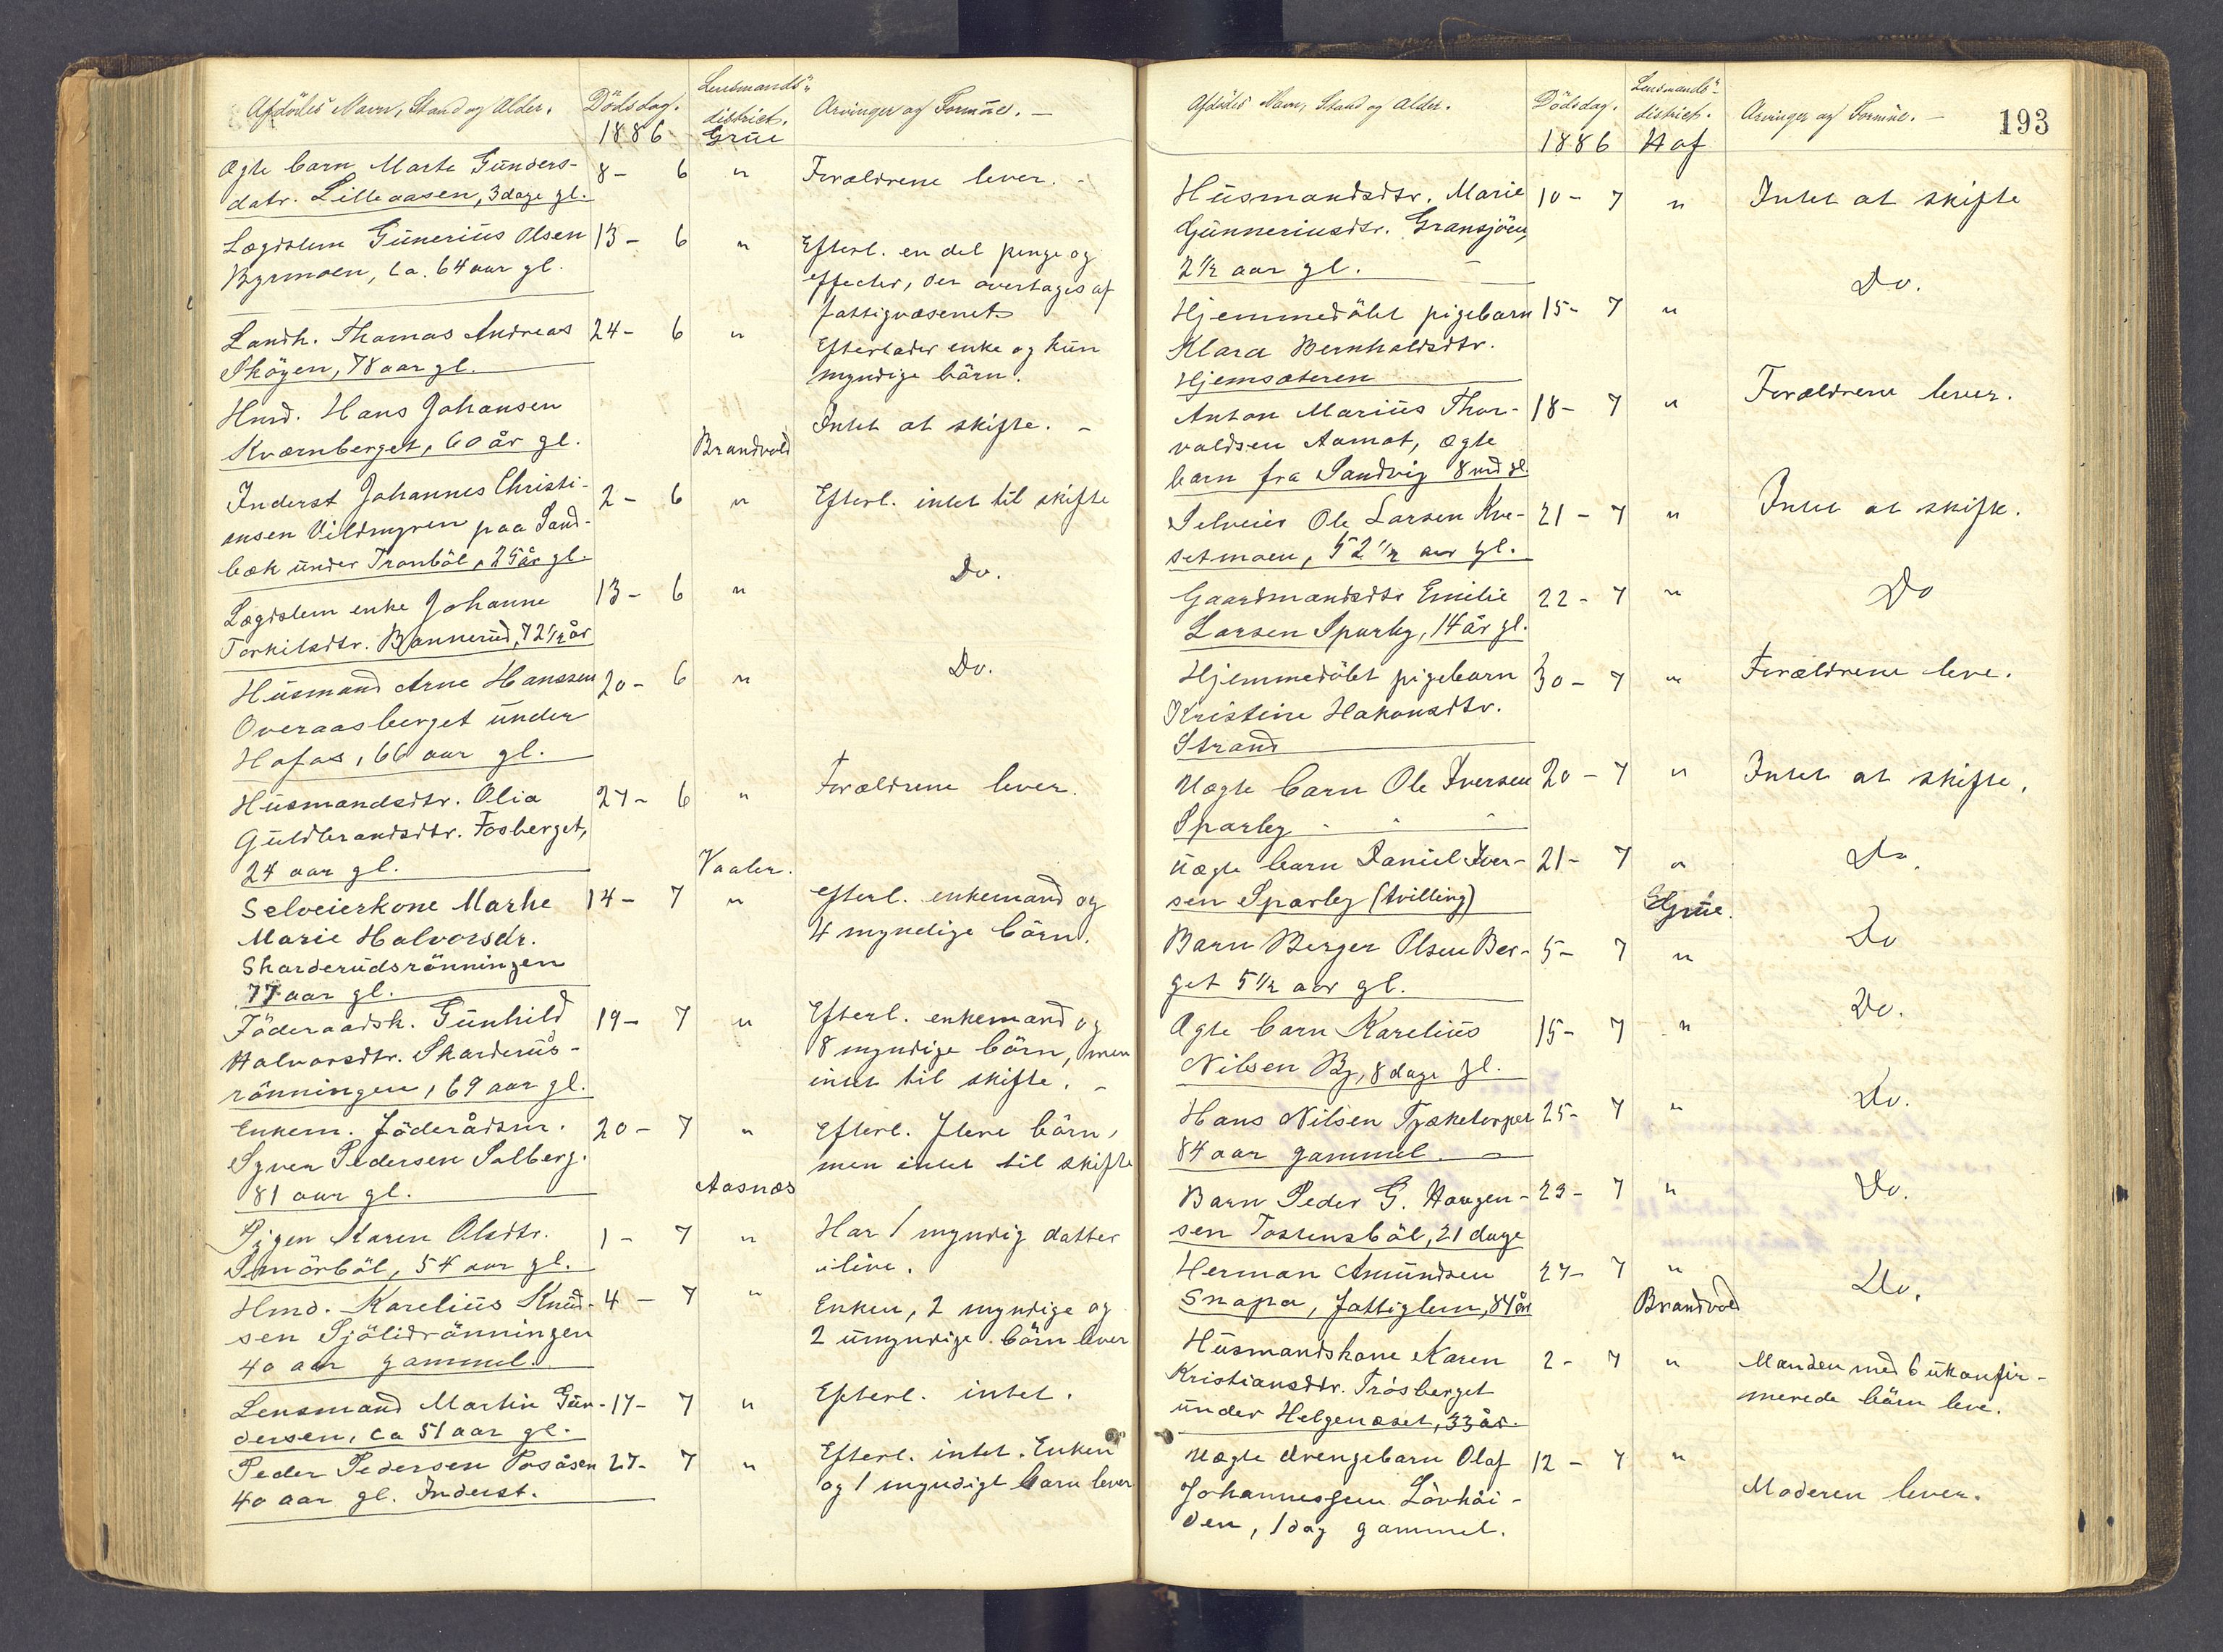 Afdødes Navn, Stand og Alder. Dødsdag. Lensmands- district. Arvinger og Formue. —
1886 Grue
Ægte barn Marte Gunders- 8 - 6 " Forældrene lever. -
datr. Lilleaasen, 3 dage gl.
Lægdslem Gunerius Olsen 13 - 6 " Efterl. en del penge og
Byrmoen, ca. 64 aar gl. effecter, der overtages af
fattigvæsenet
Landh. Thomas Andreas 24 - 6 " Efterlader enke og kun
Skøyen, 78 aar gl. myndige børn.
Hmd. Hans Johansen Intet at skifte. -
Kværnberget, 60 år gl. Brandvold
Inderst Johannes Christi- 2 - 6 " Efterl. intet til skifte
ansen Vildmyren paa Sand-
bæk under Tranbøl, 25 år gl.
Lægdslem enke Johanne 13 - 6 " Do.
Torkilsdtr. Bannerud, 72 1/2 år
Husmand Arne Hanssen 20 - 6 " Do.
Overaasberget under
Hofas, 66 aar gl.
Husmandsdtr. Olia 27 - 6 " Forældrene lever.
Guldbrandsdtr. Fosberget,
24 aar gl. Vaaler.
Selveierkone Marhe 14 - 7 " Efterl. enkemand og
Marie Halvorsdr. 4 myndige børn.
Skarderudsrønningen
77 aar gl.
Føderaadsk. Gunhild 19 - 7 " Efterl. enkemand og
Halvorsdtr. Skarderus- 8 myndige børn, men
rønningen, 69 aar gl. intet til skifte. -
Enkem. føderådsm. 20 - 7 " Efterl. flere børn,
Syver Pedersen Solberg. men intet til skifte
81 aar gl. Aasnæs
Pigen Karen Olsdtr. 1 - 7 " Har 1 myndig datter
Smørbøl, 54 aar gl. ilive.
Hmd. Karelius Knud- 4 - 7 " Enken, 2 myndige og
sen Sjølidrønningen 2 umyndige børn lever
40 aar gammel.
Lensmand Martin Gun- 17 - 7 " Efterl. intet.
dersen, ca 51 aar gl.
Peder Pedersen Posåsen 27 - 7 " Efterl. intet. Enken
40 aar gl. Inderst. og 1 myndigt barn lever
193
Afdødes Navn, Stand og Alder. Dødsdag. Lensmands- district. Arvinger og Formue. —
1886 Hof
Husmandsdtr. Marie 10 - 7 " Intet at skifte
Gunneriusdtr. Gransjøen,
2 1/2 aar gl.
Hjemmedøbt pigebarn 15 - 7 " Do.
Klara Bernhaldsdtr.
Hjemsæteren
Anton Marius Thor- 18 - 7 " Forældrene lever.
valdsen Aamot, ægte
barn fra Sandvig 8 md gl.
Selveier Ole Larsen Kve- 21 - 7 " Intet at skifte.
setmoen, 52 1/2 aar gl.
Gaardmandsdtr Emilie 22 - 7 " Do
Larsen Sparby, 14 år gl.
Hjemmedøbt pigebarn 30 - 7 " Forældrene leve.
Kristine Hakonsdtr.
Strand
Uægte barn Ole Iversen 20 - 7 " Intet at skifte.
Sparby
Uægte barn Daniel Iver- 21 - 7 " Do.
sen Sparby (tvilling) Grue.
Barn Berger Olsen Ber- 5 - 7 " Do
get 5 1/2 aar gl.
Ægte barn Karelius 15 - 7 " Do.
Nilsen By, 8 dage gl.
Hans Nilsen Tysketorpet 25 - 7 " Do.
84 aar gammel.
Barn Peder G. Haagen- 23 - 7 " Do.
sen Tostensbøl, 21 dage
Herman Amundsen 27 - 7 " Do.
Snapa, fattiglem, 84 år Brandvold
Husmandskone Karen 2 - 7 " Manden med 6 ukonfir-
Kristiansdtr. Trøsberget merede børn leve.
under Helgenæset, 33 år.
Uægte drengebarn Olaf 12 - 7 "
Johannessen Løvhøi- Moderen lever.
den, 1 dag gammel.